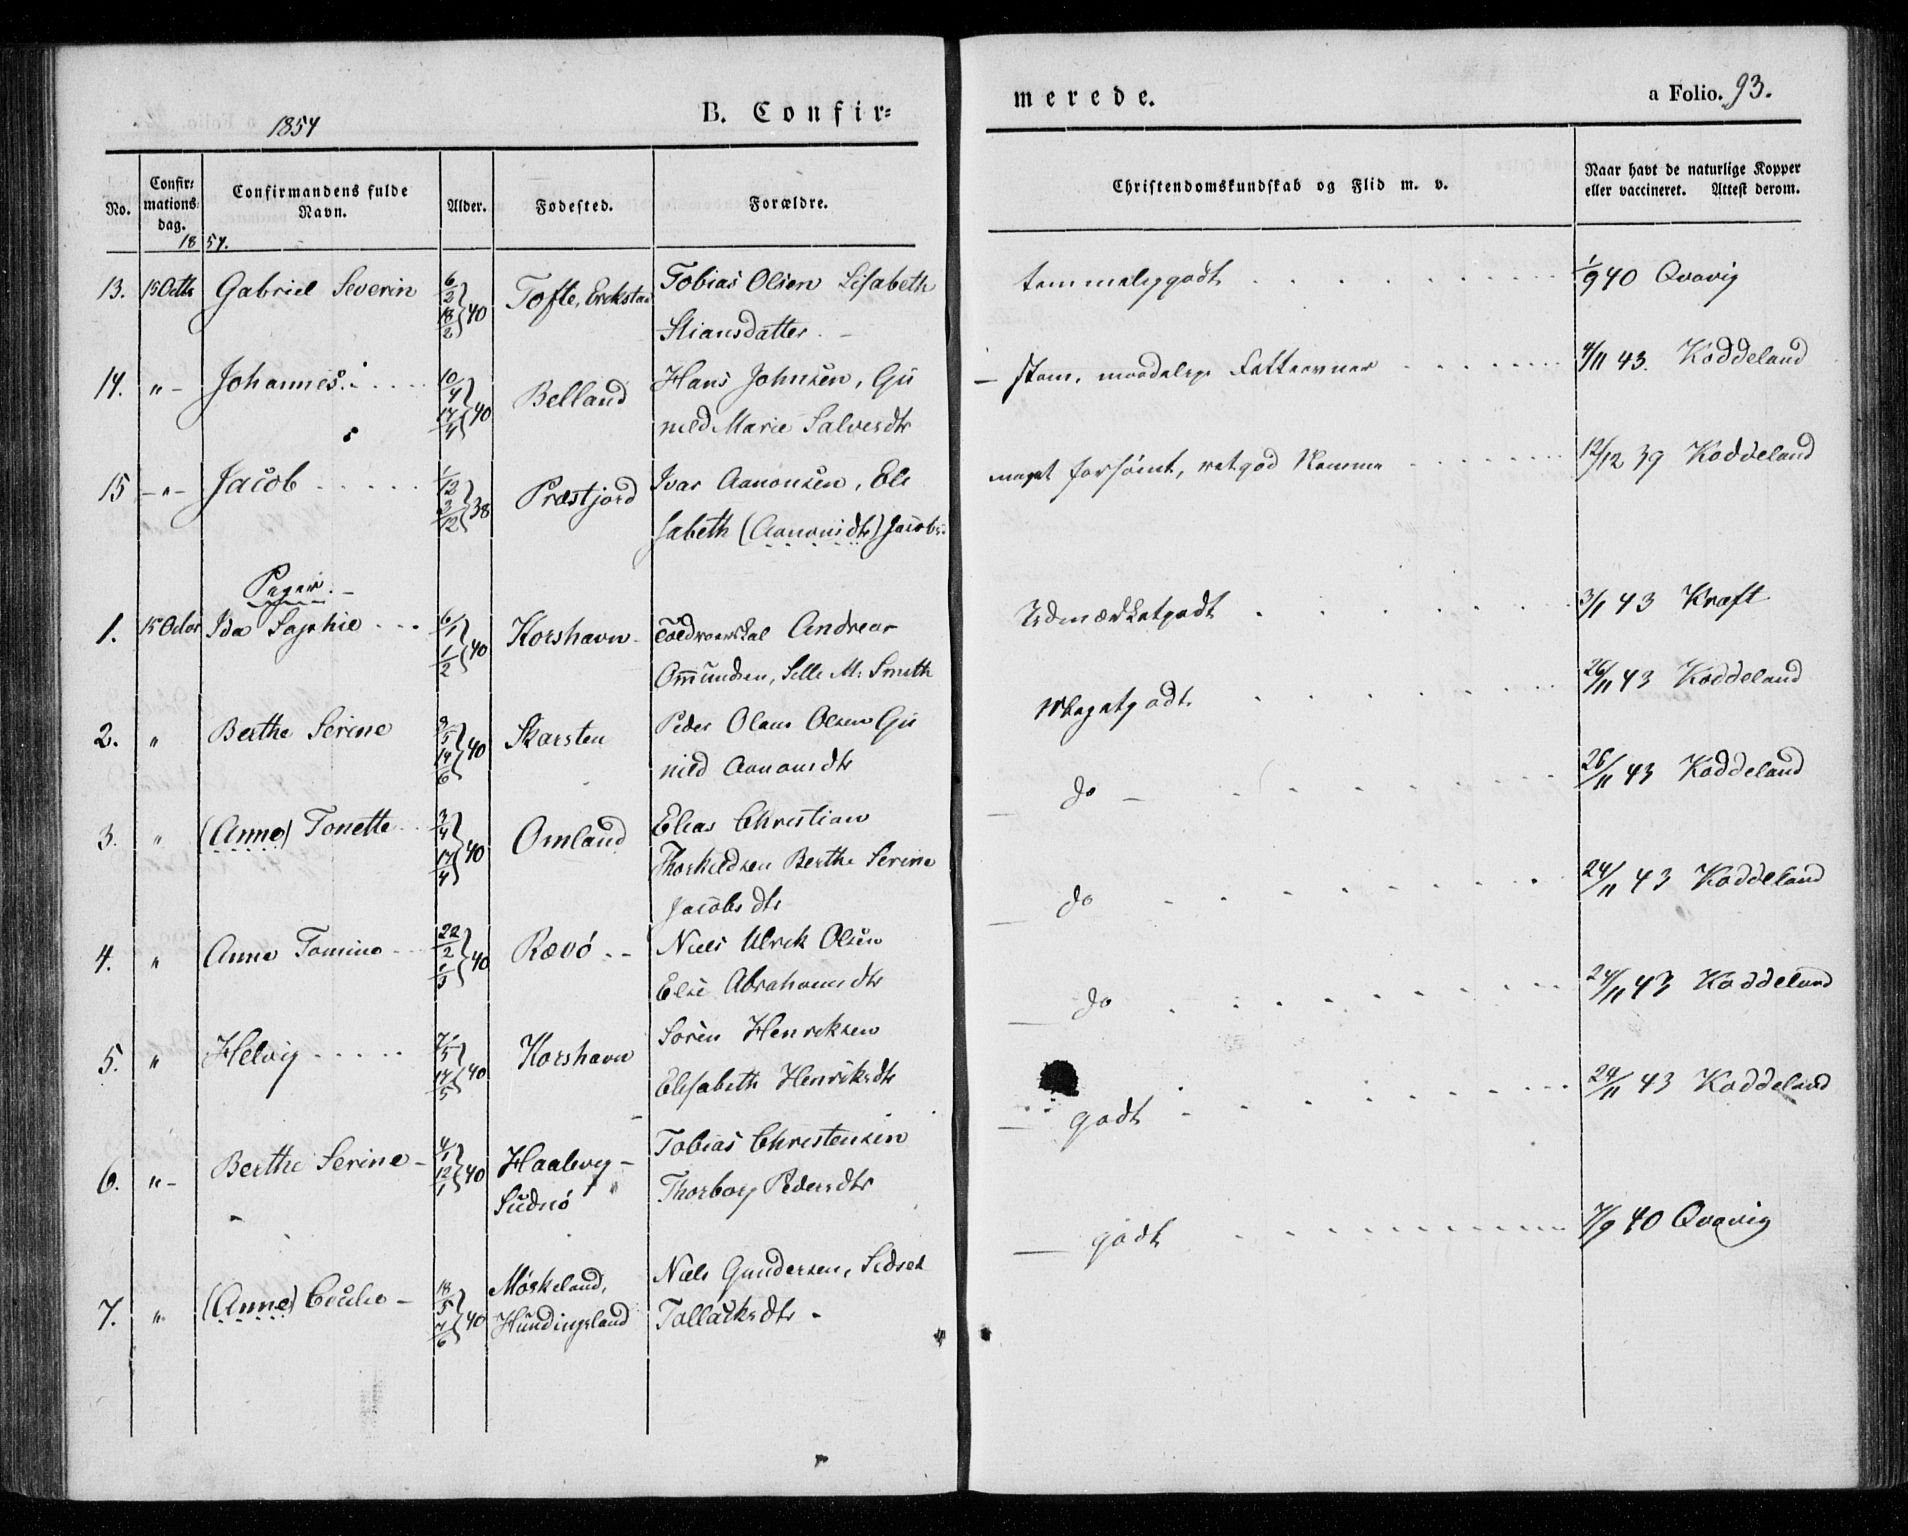 1854
B. Confir=
merede.
a Folio. 93.
No.
Confir=
mations=
dag.
Confirmandens fulde
Navn.
Alder.
Fødested.
Forældre.
Christendomskundskab og Flid m. v.
Naar havt de naturlige Kopper
eller vaccineret. Attest derom.
1854.
13. 15 Octb Gabriel Severin 6/2 18/2 40 Tofte, Tobias Olsen Lisabeth
Stiansdatter.
temmeliggodt 1/9 40 Qvavig
14. " - Johannes 10/4 17/4 40 Belland Hans Johnsen, Gu
nild Marie Salvesdtr
4/11 43. Koddeland
15 - " - Jacob 1/12 3/12 38 Præstjord Ivar Aanonsen, Eli
sabeth (Aanonsdtr) Jacobs
meget forsømt, 12/12 39 Koddeland
Piger. -
1. 15 Octbr Ida Sophie 6/1 1/2 40 Korshavn Andreas
Ommundsen, Sille M. Smith
Udmærketgodt 3/1 43 Kraft
2. " Berthe Serine 3/5 14/6 40 Skarsten Peder Olaus Olsen Gu
nild Aanonsdtr
Megetgodt 26/11 43 Koddeland
3. " (Anne) Tonette 3/4 17/4 40 Omland Elias Christian
Thorkildsen Berthe Serine
Jacobsdtr
do - 26/11 43 Koddeland
4. " Anne Tomine 22/2 1/3 40 Rævø Niels Ulrik Olsen
Else Abrahamsdtr
do 24/11 43 Koddeland
5. " Helvig 7/5 17/5 40 Korshavn Søren Henriksen
Elisabeth Henriksdtr
do 24/11 43 Koddeland
6. " - Berthe Serine - 4/1 12/1 40 Haalevig -
Südnø
Tobias Christensen
Thorborg Pedersdtr
godt 24/11 43 Koddeland
7. " (Anne) 18/5 7/6 40 Møskeland,
Hundingsland
Niels Gundersen, Sidsel
Tallaksdtr -
godt 7/9 40 Qvavig